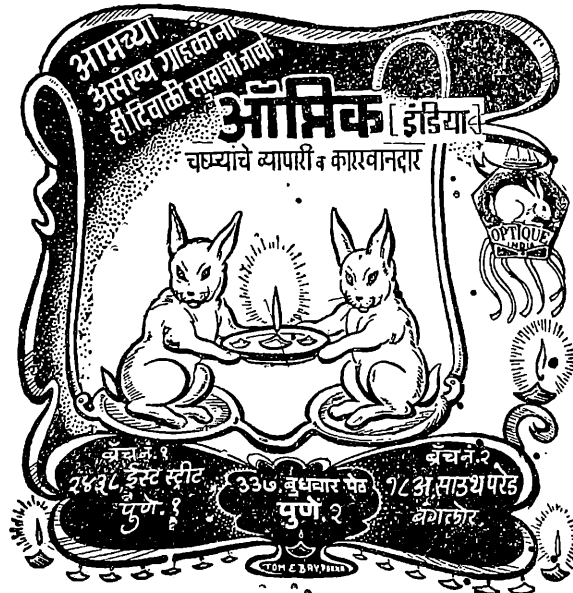 आमच्या
असंख्य ग्राहकांना
ही दिवाळी सुखाची जावो.
ऑप्टिक [इंडिया]
चष्म्यांचे व्यापारी व कारखानदार
OPTIQUE
INDIA
ब्रँच नं. १
२४३८ ईस्ट स्ट्रीट
पुणे. १
३३७ बुधवार पेठ
पुणे. २
ब्रँच नं. २
१८ अ, साउथ परेड
बंगलोर.
TOM E BAY, POONA